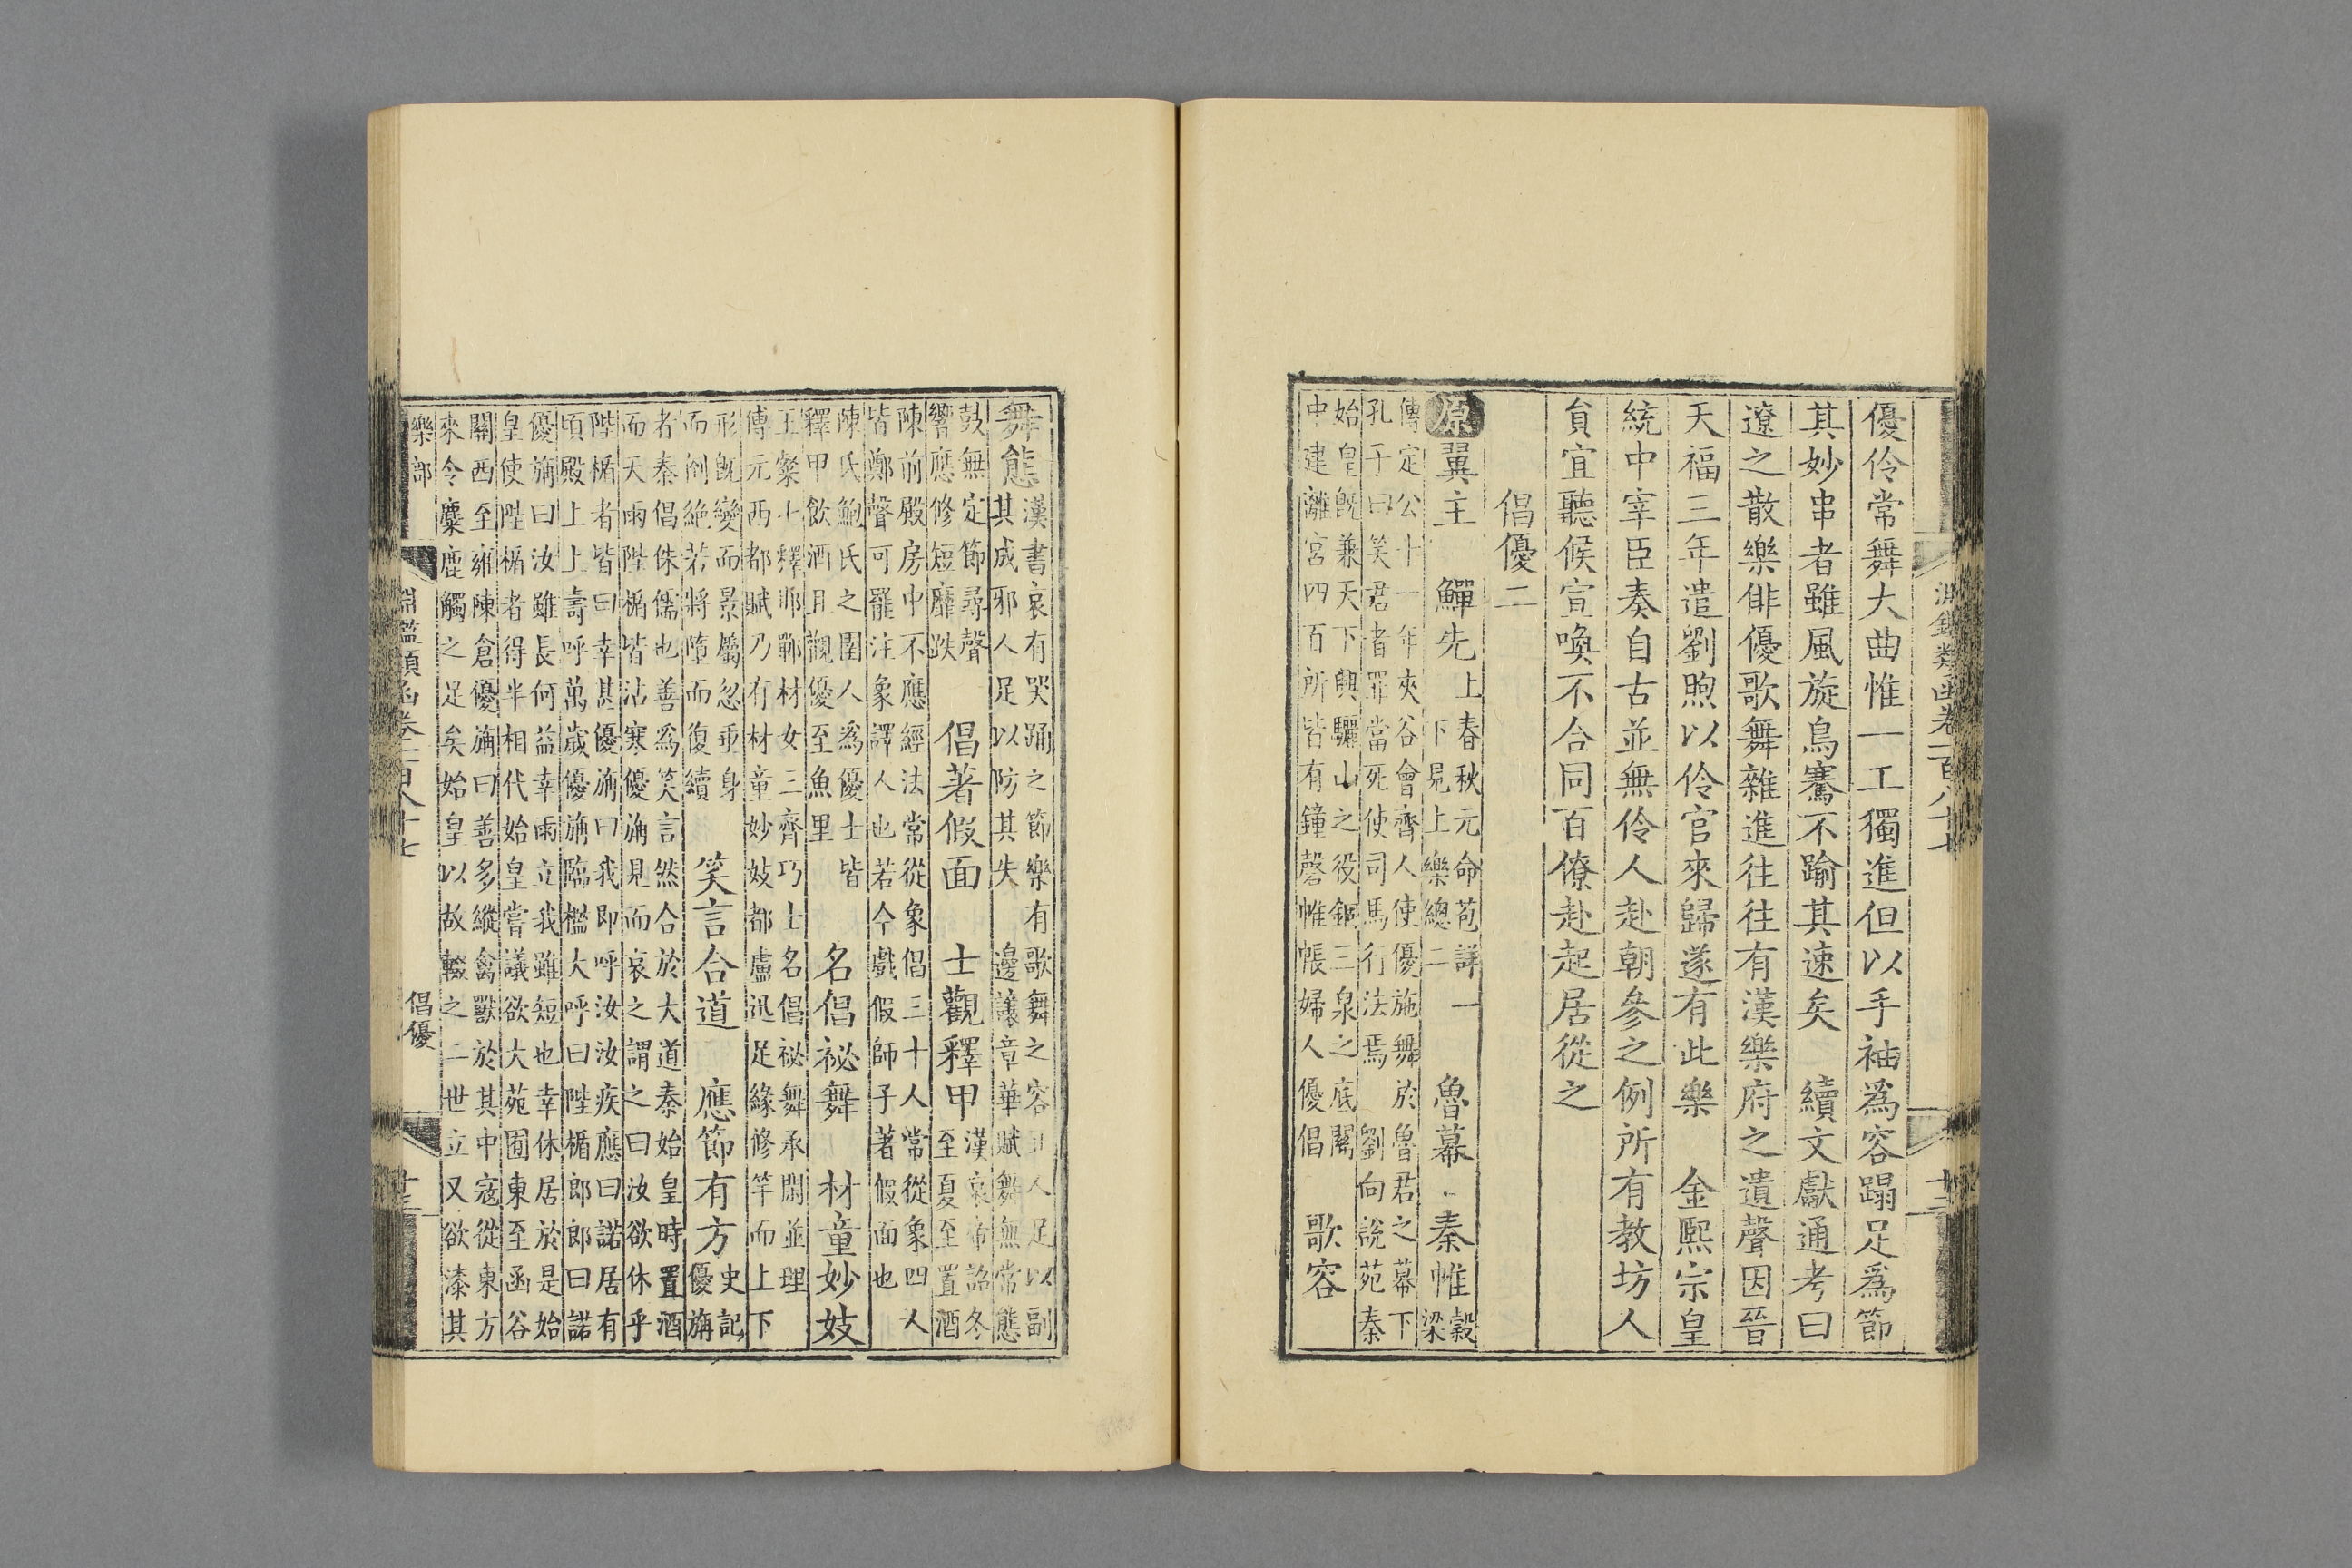 優伶常舞大曲惟一工獨進但以手袖爲容蹋足爲節
其妙串者雖風旋鳥騫不踰其速矣　續文獻通考曰
遼之散樂俳優歌舞雜進往往有漢樂府之遺聲因晉
天福三年遣劉煦以伶官來歸遂有此樂　金熙宗皇
統中宰臣奏自古並無伶人赴朝參之例所有教坊人
貟宜聽候宣喚不合同百僚赴起居從之
倡優二
原翼主　鱓先
上春秋元命苞詳一
下見上樂總二
魯幕　秦帷
穀
梁
傳定公十一年夾谷會齊人使優施舞於魯君之幕下
孔子曰笑君者罪當死使司馬行法焉　劉向說苑秦
始皇旣兼天下興驪山之役錮三泉之底關
中建離宮四百所皆有鐘磬帷帳婦人優倡
歌容
淵鑑類函卷二百八十七
十三
舞態
漢書哀有哭踊之節樂有歌舞之容正人足以副
其成邪人足以防其失　邊讓章華賦舞無常態
鼓無定節尋聲
響應修短靡跌
倡著假面　士觀釋甲
漢哀帝詔冬
至夏至置酒
陳前殿房中不應經法常從象倡三十人常從象四人
皆鄭聲可罷注象譯人也若今戲假師子著假面也
陳氏鮑氏之圉人爲優士皆
釋甲飲酒且觀優至魚里
名倡祕舞　材童妙妓
王粲七釋邯鄲材女三齊巧士名倡祕舞承閒並理
傅元西都賦乃有材童妙妓都盧迅足緣修竿而上下
形旣變而景屬忽乖身
而剏絶若將墮而復續
笑言合道　應節有方
史記
優旃
者秦倡侏儒也善爲笑言然合於大道秦始皇時置酒
而天雨陛楯皆沾寒優旃見而哀之謂之曰汝欲休乎
陛楯者皆曰幸甚優旃曰我即呼汝汝疾應曰諾居有
頃殿上上壽呼萬歲優旃臨檻大呼曰陛楯郎郎曰諾
優旃曰汝雖長何益幸雨立我雖短也幸休居於是始
皇使陛楯者得半相代始皇嘗議欲大苑囿東至函谷
關西至雍陳倉優旃曰善多縱禽獸於其中寇從東方
來令麋鹿觸之足矣始皇以故輟之二世立又欲漆其
樂部
淵鑑類函卷二百八十七
倡優
十三